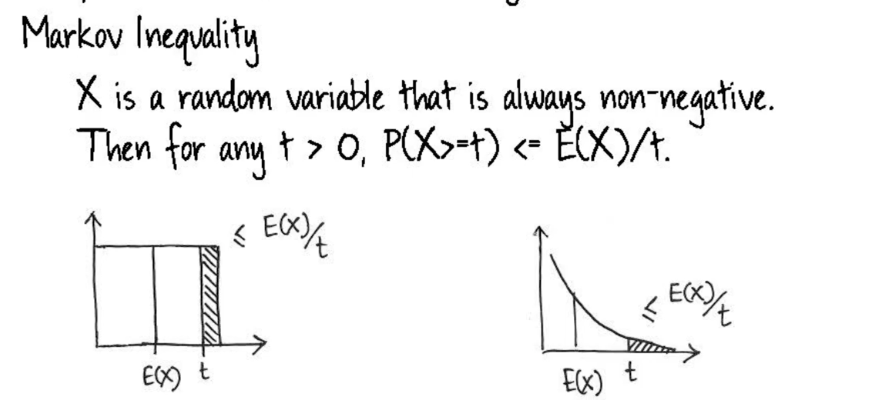 Markov Inequality
X is a random variable that is always non-negative.
Then for any t > 0, P(X>=t) <= E(X)/t.
≤ E(X)/t
E(X) t
≤ E(X)/t
E(X) t